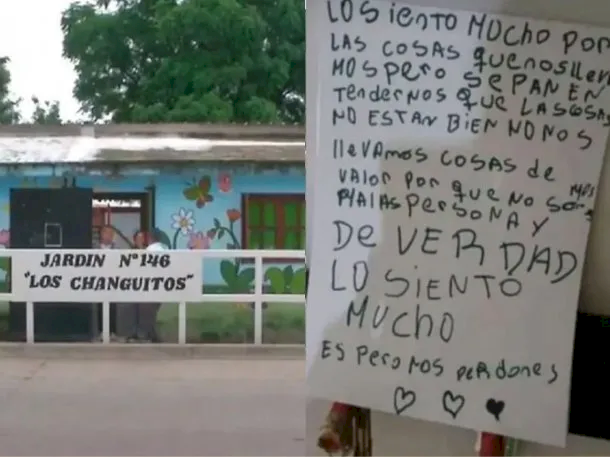 JARDIN N°146
"LOS CHANGUITOS"
LO SIENTO MUCHO POR
LAS COSAS QUE NOS LLEVA
MOS PERO SE PAN EN
TENDERNOS QUE LAS COSAS
NO ESTAN BIEN NO NOS
llEVAMOS COSAS DE
VALOR POR QUE NO SOMOS
MALAS PERSONA Y
DE VERDAD
LO SIENTO
MUCHO
ES PERO NOS PERDONES